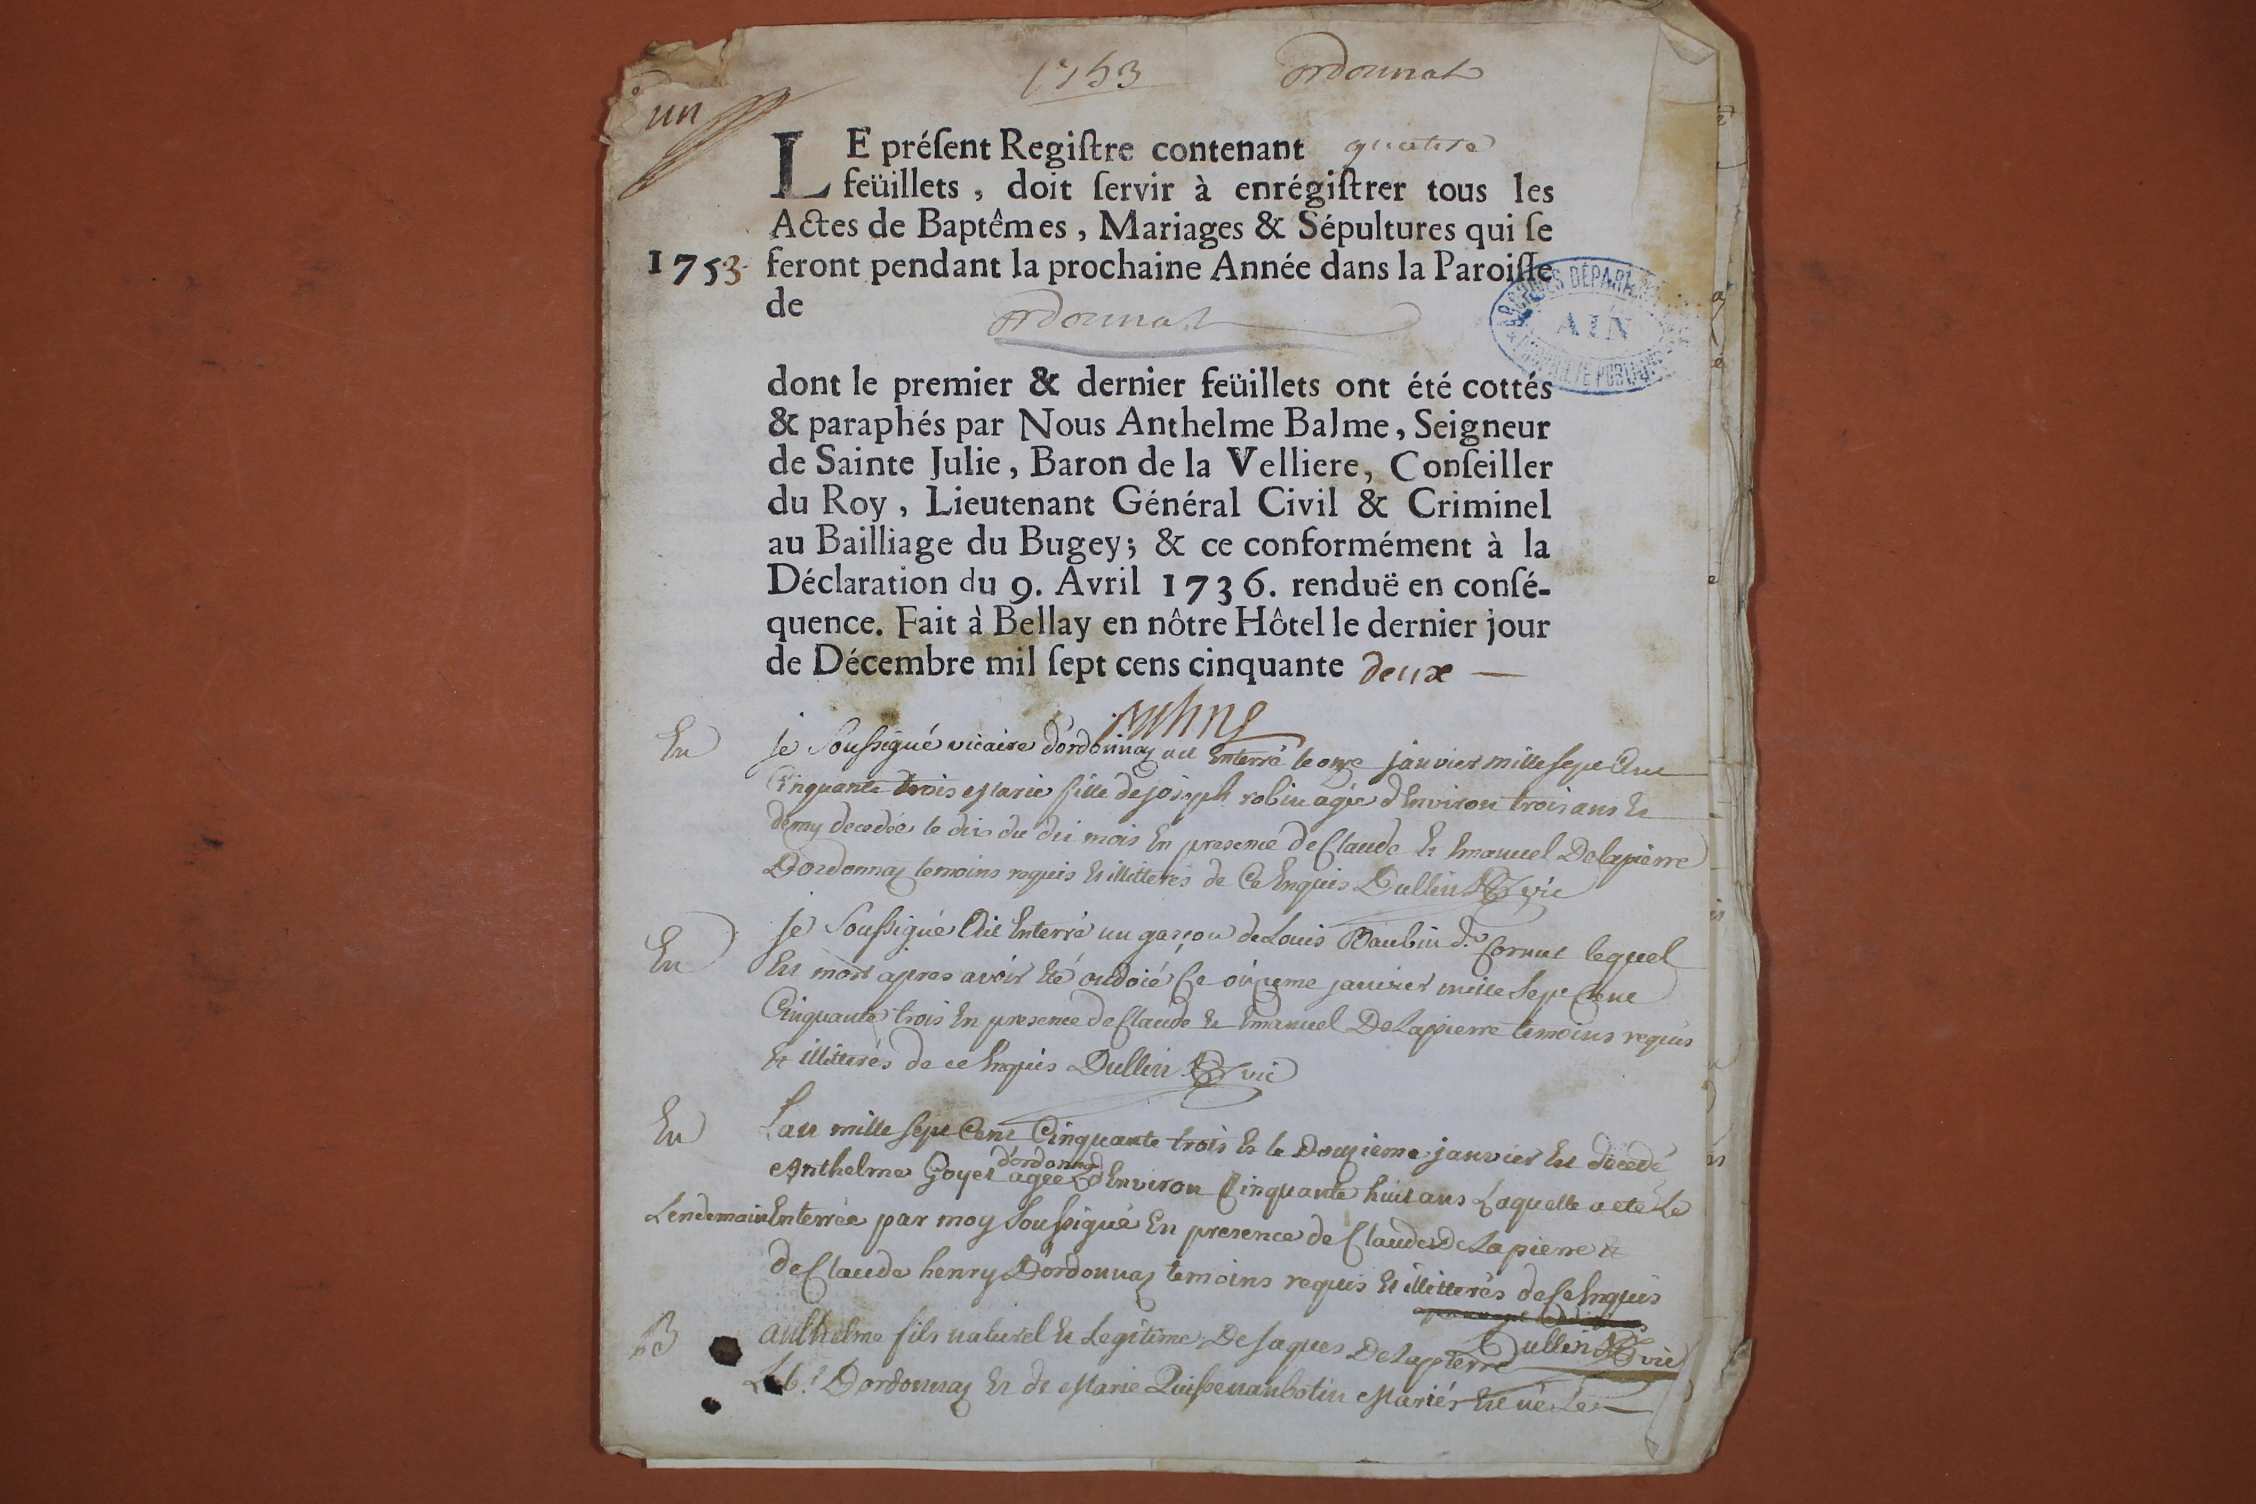 1753 ordonnat
un
LE préſent Regiſtre contenant quatre
feüillets, doit ſervir à enrégiſtrer tous les
Actes de Baptêmes, Mariages & Sépultures qui ſe
1753. feront pendant la prochaine Année dans la Paroiſſe
de ordonnat
ARCHIVES DÉPART AIN PROPRIÉTÉ PUBLIQUE
dont le premier & dernier feüillets ont été cottés
& paraphés par Nous Anthelme Balme, Seigneur
de Sainte Julie, Baron de la Velliere, Conſeiller
du Roy, Lieutenant Général Civil & Criminel
au Bailliage du Bugey; & ce conformément à la
Déclaration du 9. Avril 1736. renduë en conſé-
quence. Fait à Bellay en nôtre Hôtel le dernier jour
de Décembre mil ſept cens cinquante deux
En je Soussigné vicaire d'ordonnaz ai Enterré le onze janvier mille sept Cent
Cinquante trois Marie fille de joseph robin agée d'Environ trois ans Et
demy decedée le dix du dit mois En presence de Claude Et Emanuel Delapierre
Dordonnaz temoins requis Et illitterés de Ce Enquis Dullin vic
En je Soussigné Ait Enterré un garçon de Louis Baubin d. Cornut lequel
Est mort apres avoir Eté ondoié Ce onzieme janvier mille Sept Cent
Cinquante trois En presence de Claude Et Emanuel DeLapierre temoins requis
Et illitterés de ce Enquis Dullin vic
En Lan mille Sept Cent Cinquante trois Et le Douzieme janvier Est décedé
Anthelme Goyet d'ordonnaz agée d'Environ Cinquante huit ans Laquelle a eté Le
Lendemain Enterrée par moy Soussigné En presence de Claude de Lapierre et
de Claude henry D'ordonnaz temoins requis Et illitterés de Ce Enquis
Dullin vic
B anthelme fils naturel Et Legitime De Jaques Delapierre
Dordonnaz Et de Marie Mariés Est né Le